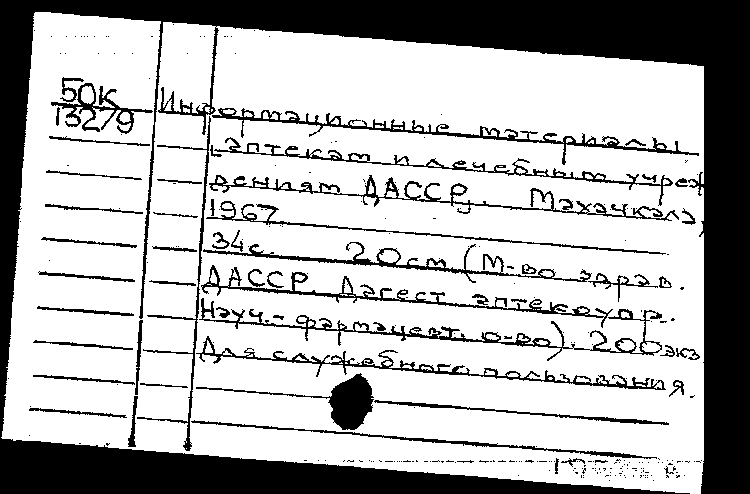 50К
13279
Информационные материалы
[аптекам и лечебным учреж
дениям ДАССР]. Махачкала,
1967.
34с. 20см (М-во здрав.
ДАССР. Дагест. аптекоупр.
Науч.-фармацевт. о-во). 200экз
Для служебного пользования.